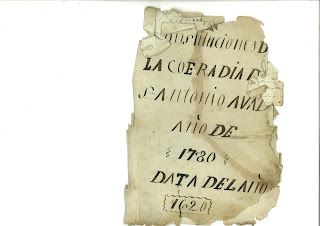 onstituciones D
LA COFRADÍA D
S ANTONIO AVAD
AÑO DE
1780
DATA DEL AÑO
1620